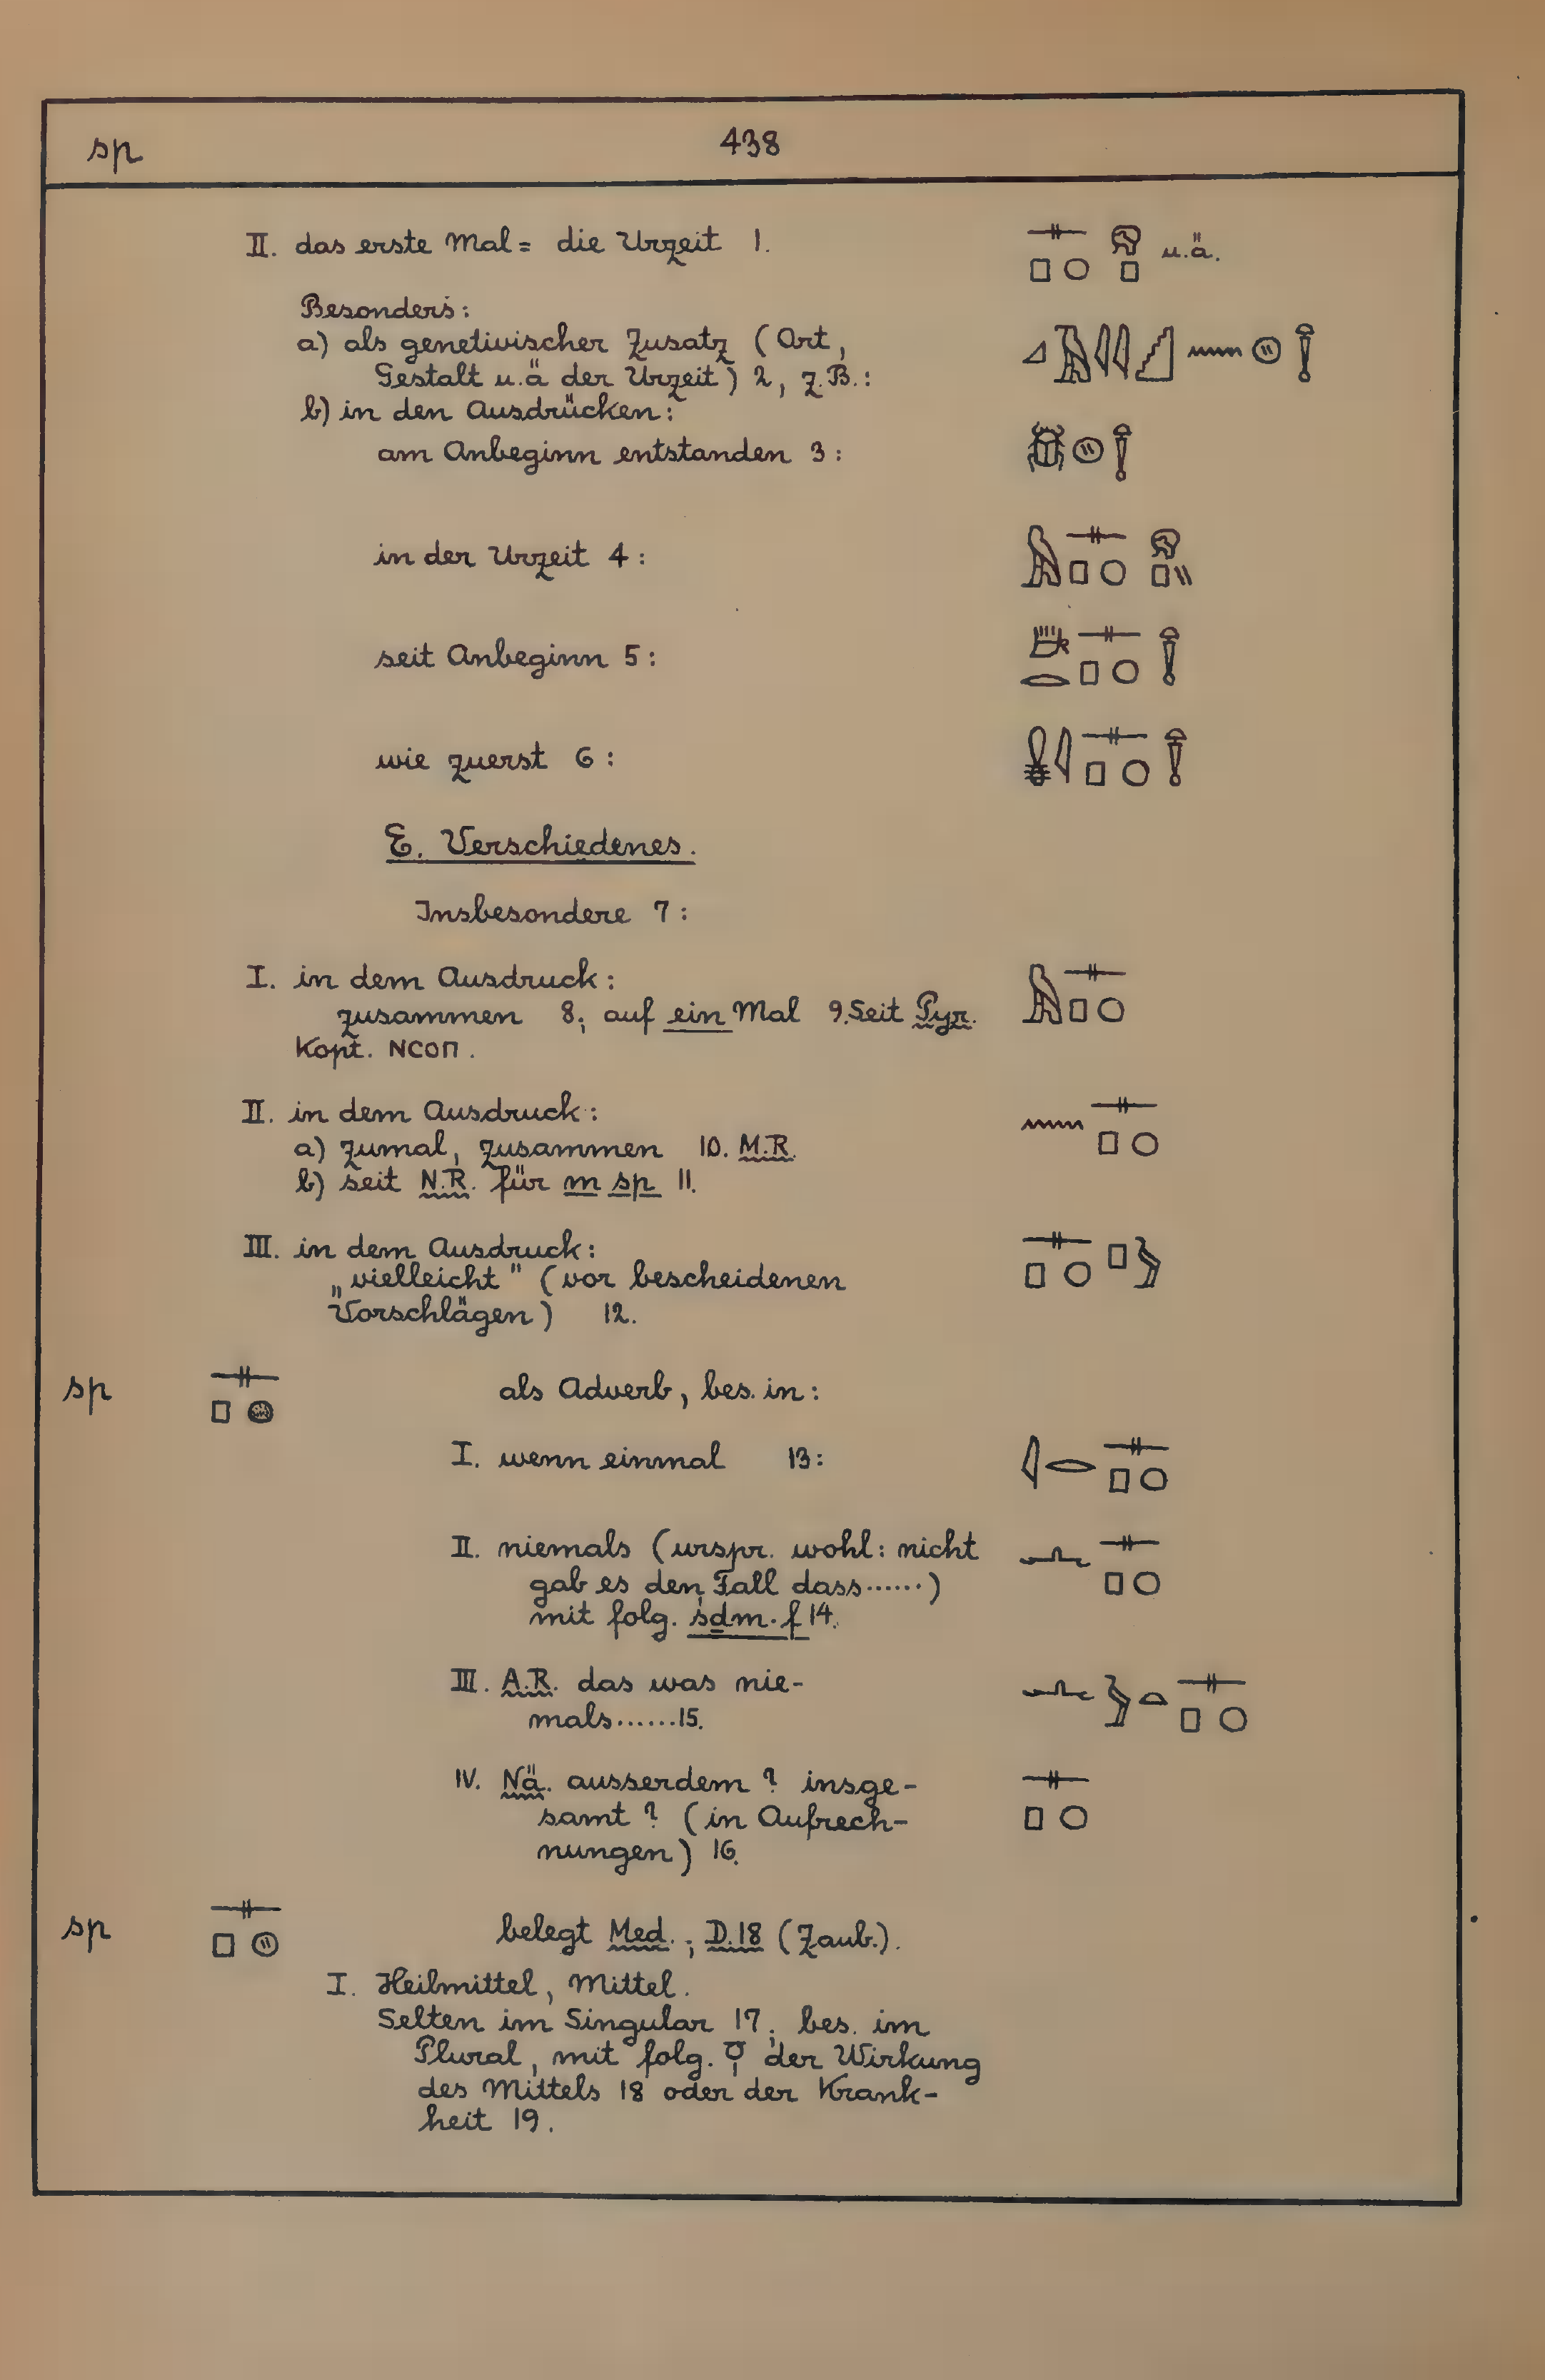 sp 438
II. das erste Mal = die Urzeit 1. u.ä.
Besonders:
a) als genetivischer Zusatz (Ort,
Gestalt u.ä der Urzeit) 2, z.B.:
b) in den Ausdrücken:
am Anbeginn entstanden 3:
in der Urzeit 4:
seit Anbeginn 5:
wie zuerst 6:
E. Verschiedenes.
Insbesondere 7:
I. in dem Ausdruck:
zusammen 8; auf ein Mal 9. Seit Pyr.
Kopt. ⲚⲤⲞⲠ.
II. in dem Ausdruck:
a) zumal, zusammen 10. M.R.
b) seit N.R. für m sp 11.
III. in dem Ausdruck:
„vielleicht" (vor bescheidenen
Vorschlägen) 12.
sp als Adverb, bes. in:
I. wenn einmal 13:
II. niemals (urspr. wohl: nicht
gab es den Fall dass......)
mit folg. śḏm.f 14.
III. A.R. das was nie-
mals......15.
IV. Nä. ausserdem? insge-
samt? (in Aufrech-
nungen) 16.
sp belegt Med.; D.18 (Zaub.).
I. Heilmittel, Mittel.
Selten im Singular 17; bes. im
Plural, mit folg. der Wirkung
des Mittels 18 oder der Krank-
heit 19.